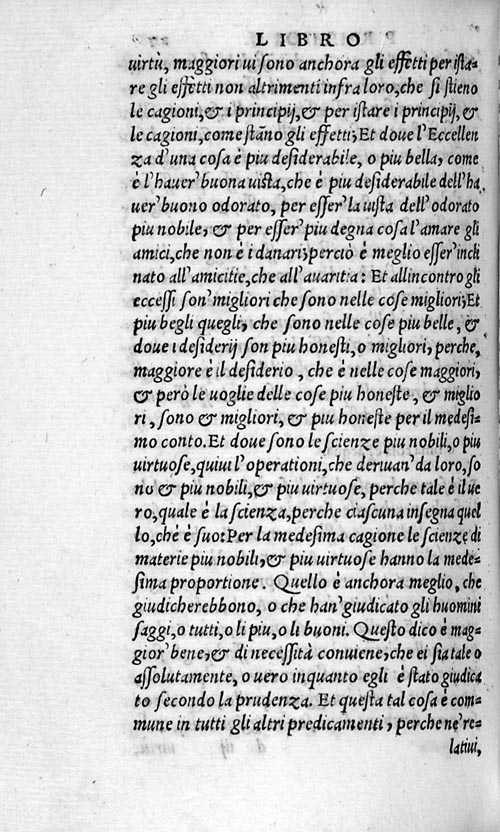 LIBRO
virtù, maggiori vi sono anchora gli effetti per ista-
re gli effetti non altrimenti infra loro, che si stieno
le cagioni, & i principij, & per istare i principij, &
le cagioni, come stāno gli effetti; Et dove l'Eccellen
za d'una cosa é piu desiderabile, o piu bella, come
é l'haver' buona vista, che é piu desiderabile dell'ha
uer' buono odorato, per esser' la vista dell'odorato
piu nobile, & per esser' piu degna cosa l'amare gli
amici, che non é i danari; perciò é meglio esser' incli
nato all'amicitie, che all'avaritia: Et allincontro gli
eccessi son' migliori che sono nelle cose migliori; Et
piu begli quegli, che sono nelle cose piu belle, &
dove i desiderij son piu honesti, o migliori, perche,
maggiore é il desiderio, che é nelle cose maggiori,
& però le voglie delle cose piu honeste, & miglio
ri, sono & migliori, & piu honeste per il medesi-
mo conto. Et dove sono le scienze piu nobili, o piu
virtuose, quivi l'operationi, che derivan' da loro, so
no & piu nobili, & piu virtuose, perche tale é il ve
ro, quale é la scienza, perche ciascuna insegna quel
lo, ché é suo: Per la medesima cagione le scienze di
materie piu nobili, & piu virtuose hanno la mede-
sima proportione. Quello é anchora meglio, che
giudicherebbono, o che han' giudicato gli huomini
saggi, o tutti, o li piu, o li buoni. Questo dico é mag-
gior' bene, & di necessità conviene, che ei sia tale o
assolutamente, o vero inquanto egli é stato giudica
to secondo la prudenza. Et questa tal cosa é com-
mune in tutti gli altri predicamenti, perche ne' re-
lativi,